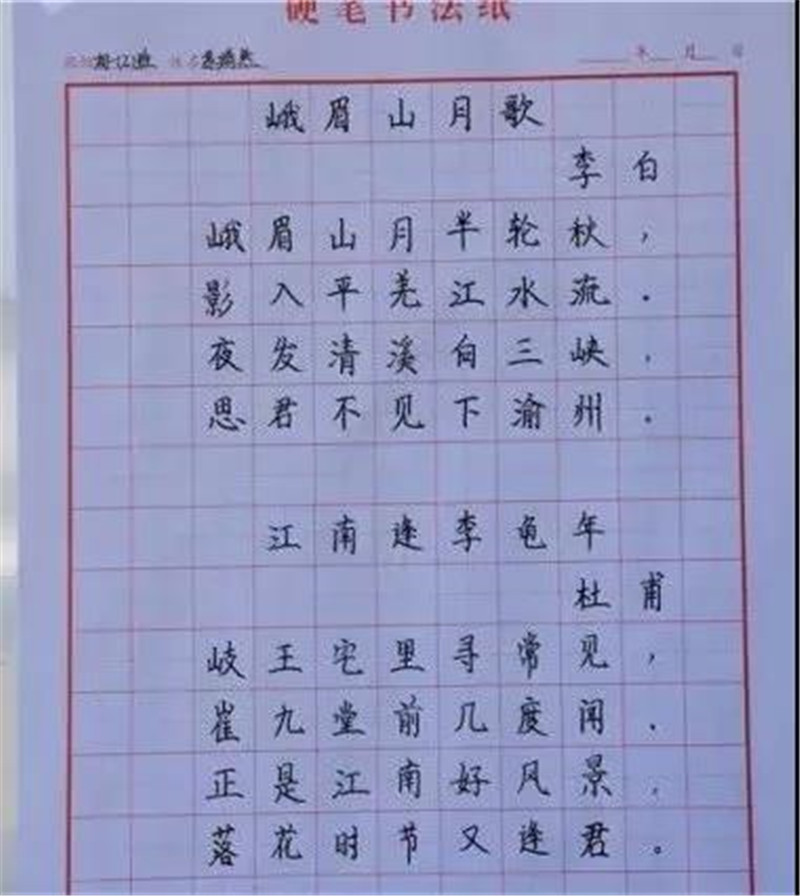 硬笔书法纸
年 月 日
峨眉山月歌
李白
峨眉山月半轮秋，
影入平羌江水流。
夜发清溪向三峡，
思君不见下渝州。
江南逢李龟年
杜甫
岐王宅里寻常见，
崔九堂前几度闻。
正是江南好风景，
落花时节又逢君。